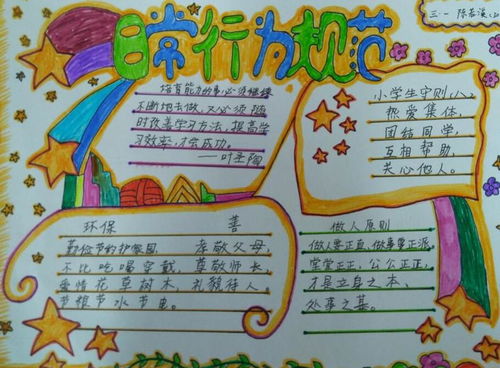 日常行为规范
三.一 陈若溪
培育能力的事必须继续
不断地去做,又必须随
时改善学习方法,提高学
习效率,才会成功。
——叶圣陶
小学生守则(八)
热爱集体,
团结同学,
互相帮助,
关心他人。
环保 善
勤俭节约护家园, 孝敬父母,
不比吃喝穿戴, 尊敬师长,
爱惜花草树木, 礼貌待人。
节粮节水节电。
做人原则
做人要正直,做事要正派。
堂堂正正,公公正正,
才是立身之本、
处事之基。